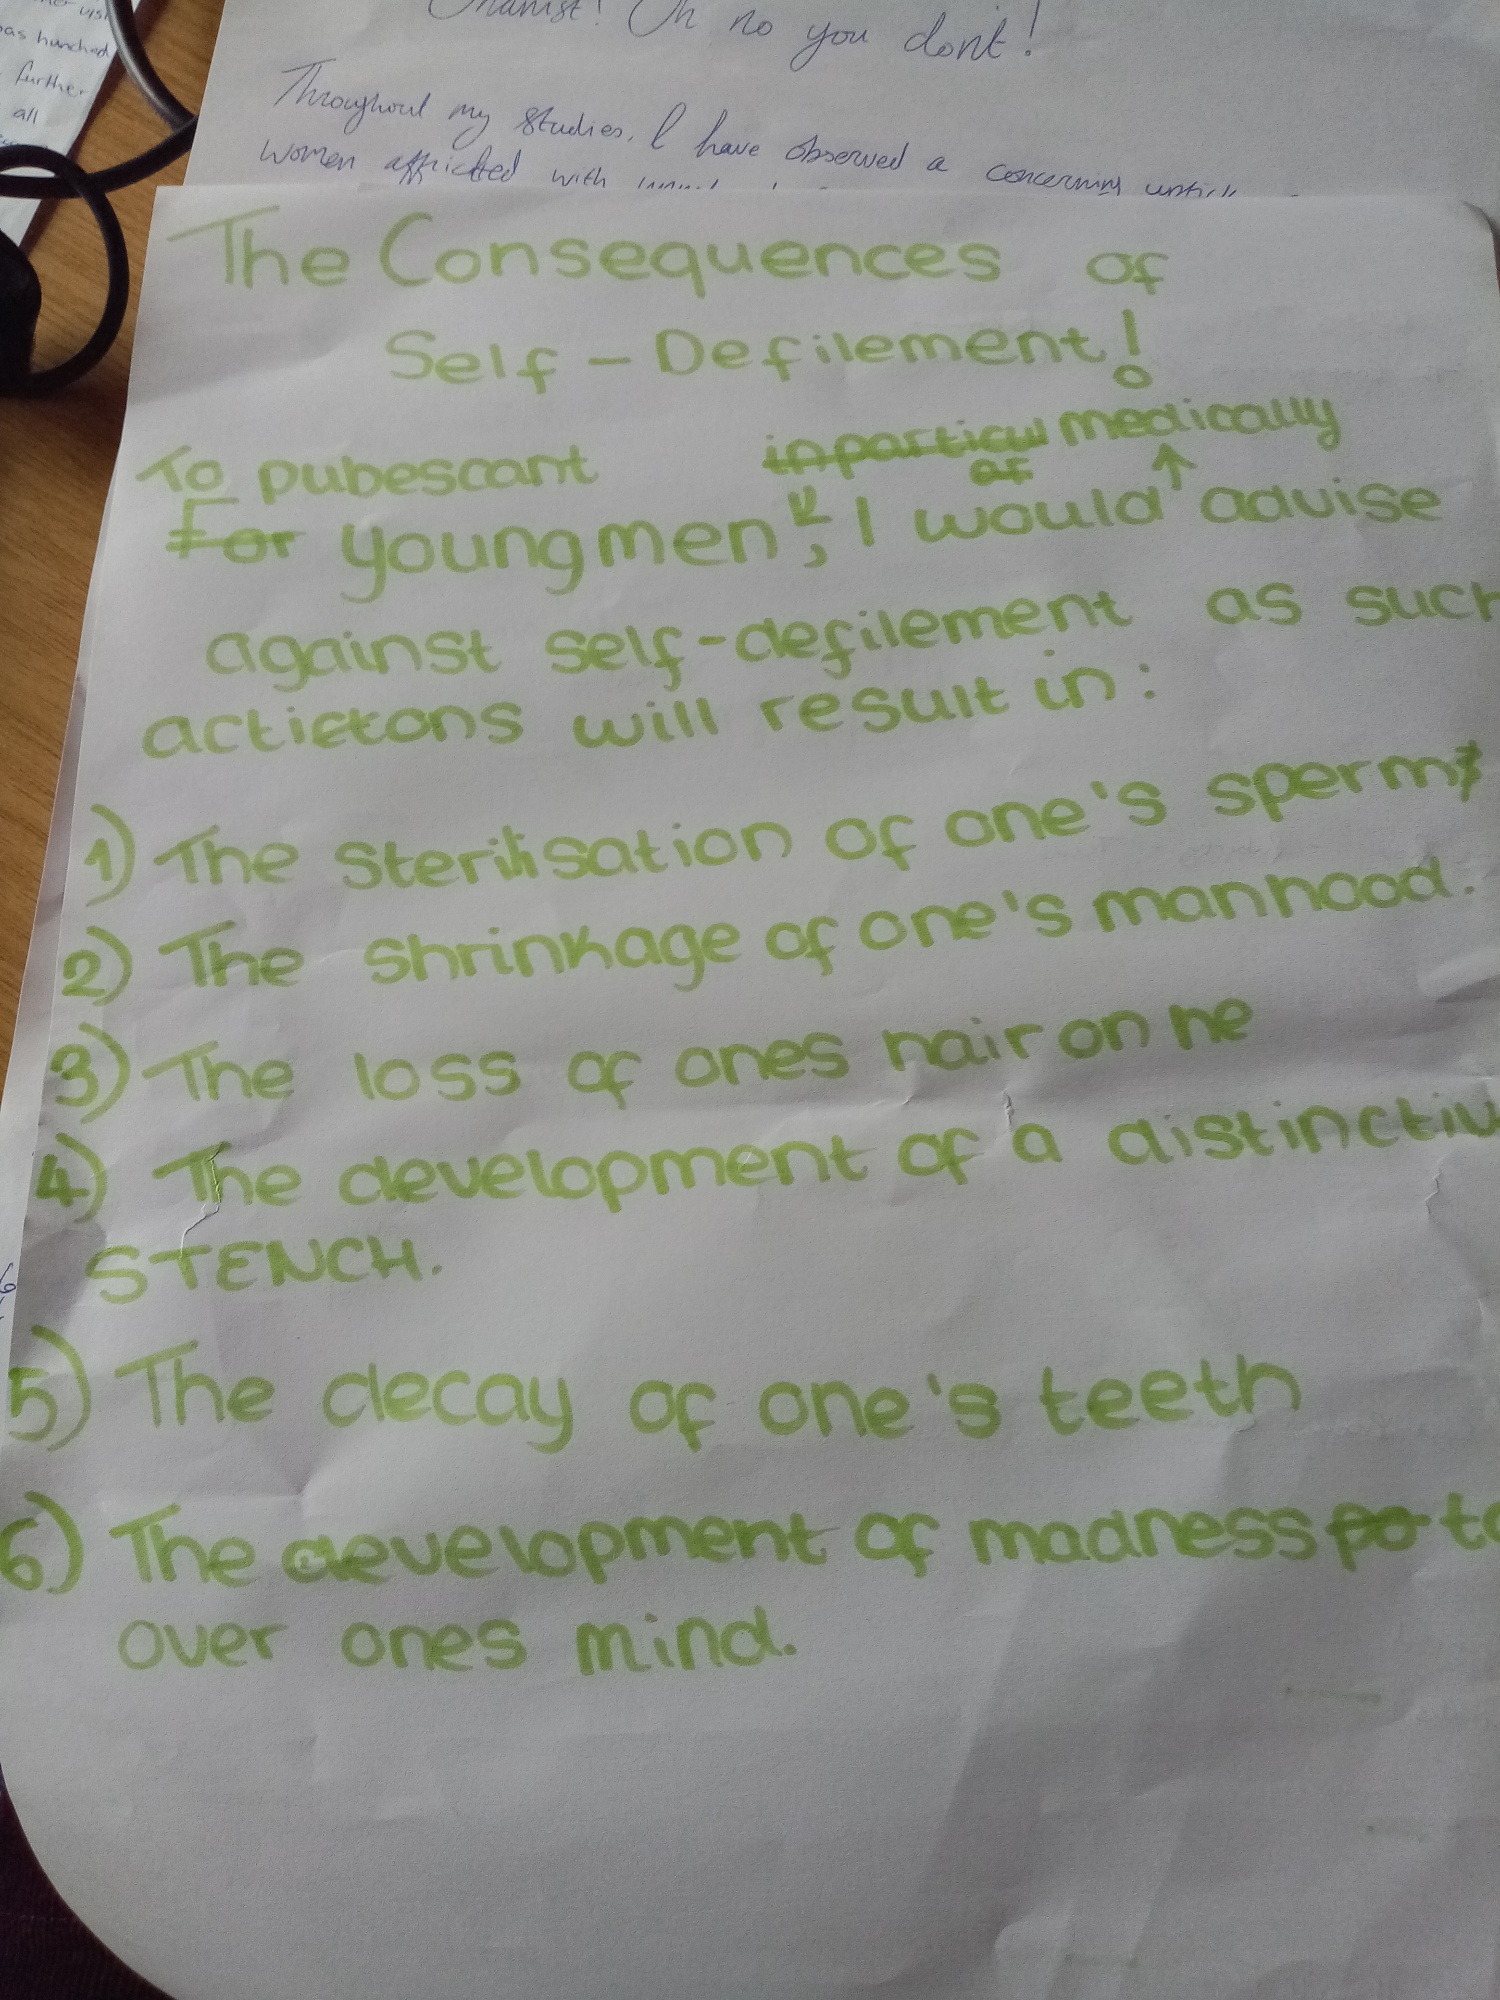 her visi
was hunched
further
all
Onanist! Oh no you don't!
Throughout my studies, I have observed a concerning
women afflicted with
The Consequences of
Self-Defilement!
To pubescant in particul medically
ar
For young men, I would advise
against self-defilement as such
actictons will result in:
1) The sterilisation of one's sperm
2) The shrinkage of one's manhood.
3) The loss of ones hair on he
4) The development of a distinctiv
STENCH.
5) The decay of one's teeth
6) The development of madness po to
over ones mind.